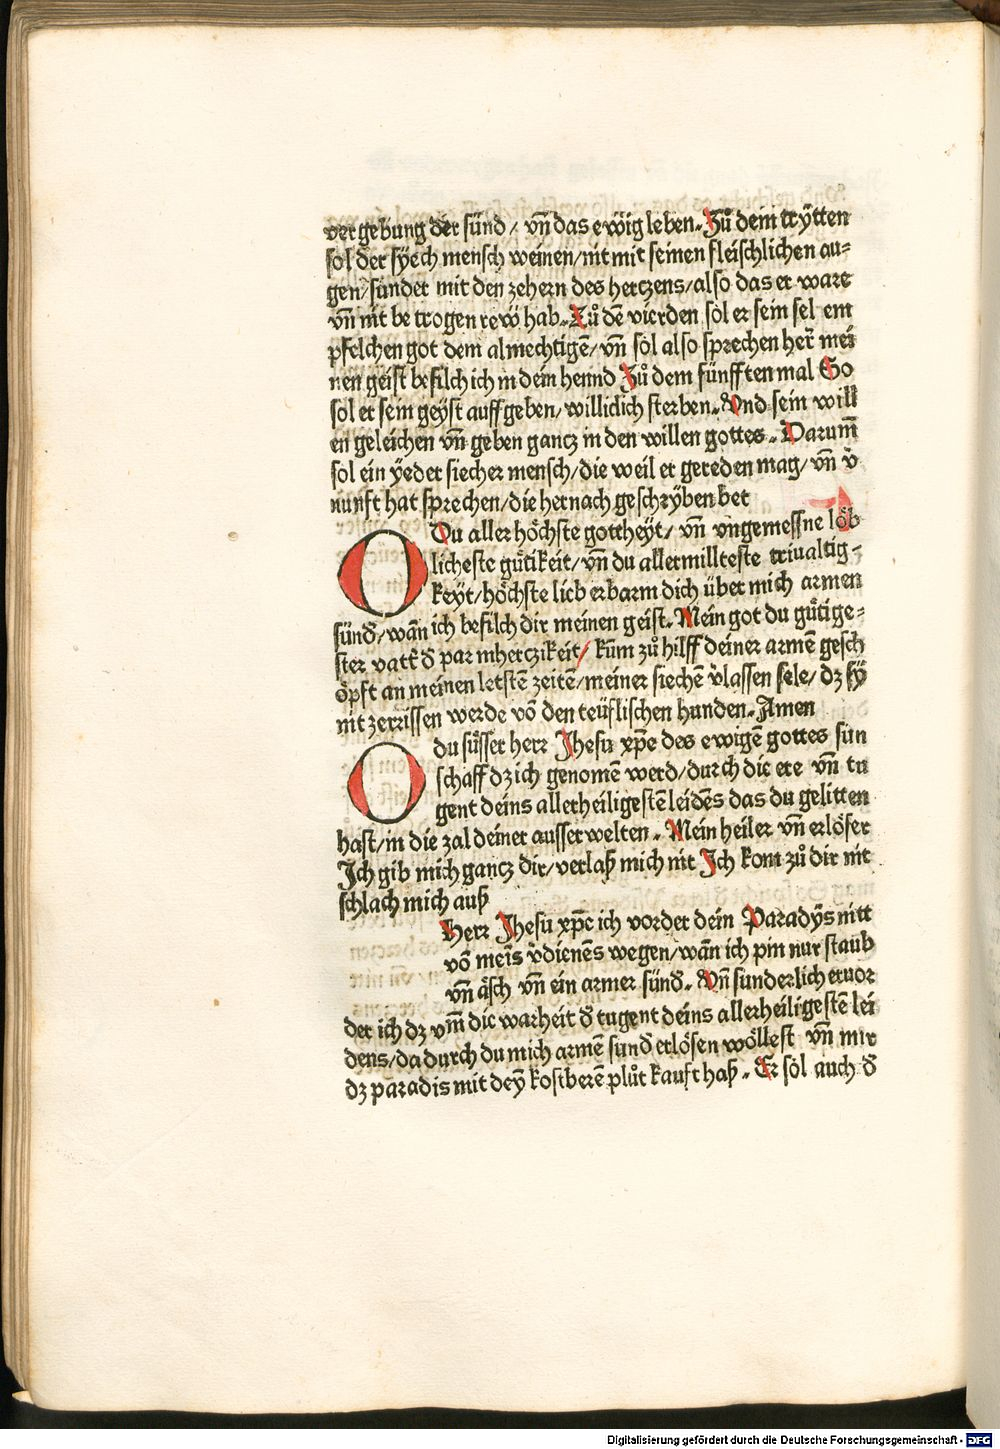 vergebung der sünd / vn̄ das ewig leben. Zů dem trÿtten
sol der sÿech mensch weinen / nit mit seinen fleischlichen au⸗
gen / sunder mit den zehern des hertzens / also das er ware
vn̄ nit betrogen rew hab. Zů dē vierden sol er sein sel em
pfelchen got dem almechtigē / vn̄ sol also sprechen her̄ mei
nen geist befilch ich in dein hennd Zů dem fünfften mal So
sol er sein geÿst auff geben / willidich sterben. Vnd sein will
en geleichen vn̄ geben gancz in den willen gottes. Darum̄
sol ein ÿeder siecher mensch / die weil er gereden mag / vn̄ v̄
nunft hat sprechen / die hernach geschrÿben bet
O Du aller höchste gottheÿt / vn̄ vngemessne löb
licheste gu̇tikeit / vn̄ du allermillteste triualtig⸗
keÿt / höchste lieb erbarm dich über mich armen
sünd̄ / wan̄ ich befilch dir meinen geist. Mein got du gu̇tige⸗
ster vatt̄ d̄ parmherczikeit / kum̄ zů hilff deiner armē gesch
öpft an meinen letstē zeitē / meiner siechē v̄lassen sele / dz sÿ
nit zerrissen werde vō den teüflischen hunden. Amen
O du su̇sser herr Jhesu xp̄e des ewigē gottes sun
schaff dz ich genomē werd / durch die ere vn̄ tu
gent deins allerheiligestē leidēs das du gelitten
hast / in die zal deiner ausserwelten. Mein heiler vn̄ erlöser
Ich gib mich gancz dir / verlaß mich nit Ich kom zů dir nit
schlach mich auß
Herr Jhesu xp̄e ich vorder dein Paradÿs nitt
vō meīs v̄dienēs wegen / wan̄ ich pin nur staub
vn̄ äsch vn̄ ein armer sünd̄. Vn̄ sunderlich eruor
der ich dz vm̄ die warheit d̄ tugent deins allerheiligestē lei
dens / da durch du mich armē sund̄ erlösen wöllest vn̄ mir
dz paradis mit deÿ kostberē plůt kauft haß. Er söl auch d̄
Digitalisierung gefördert durch die Deutsche Forschungsgemeinschaft - DFG